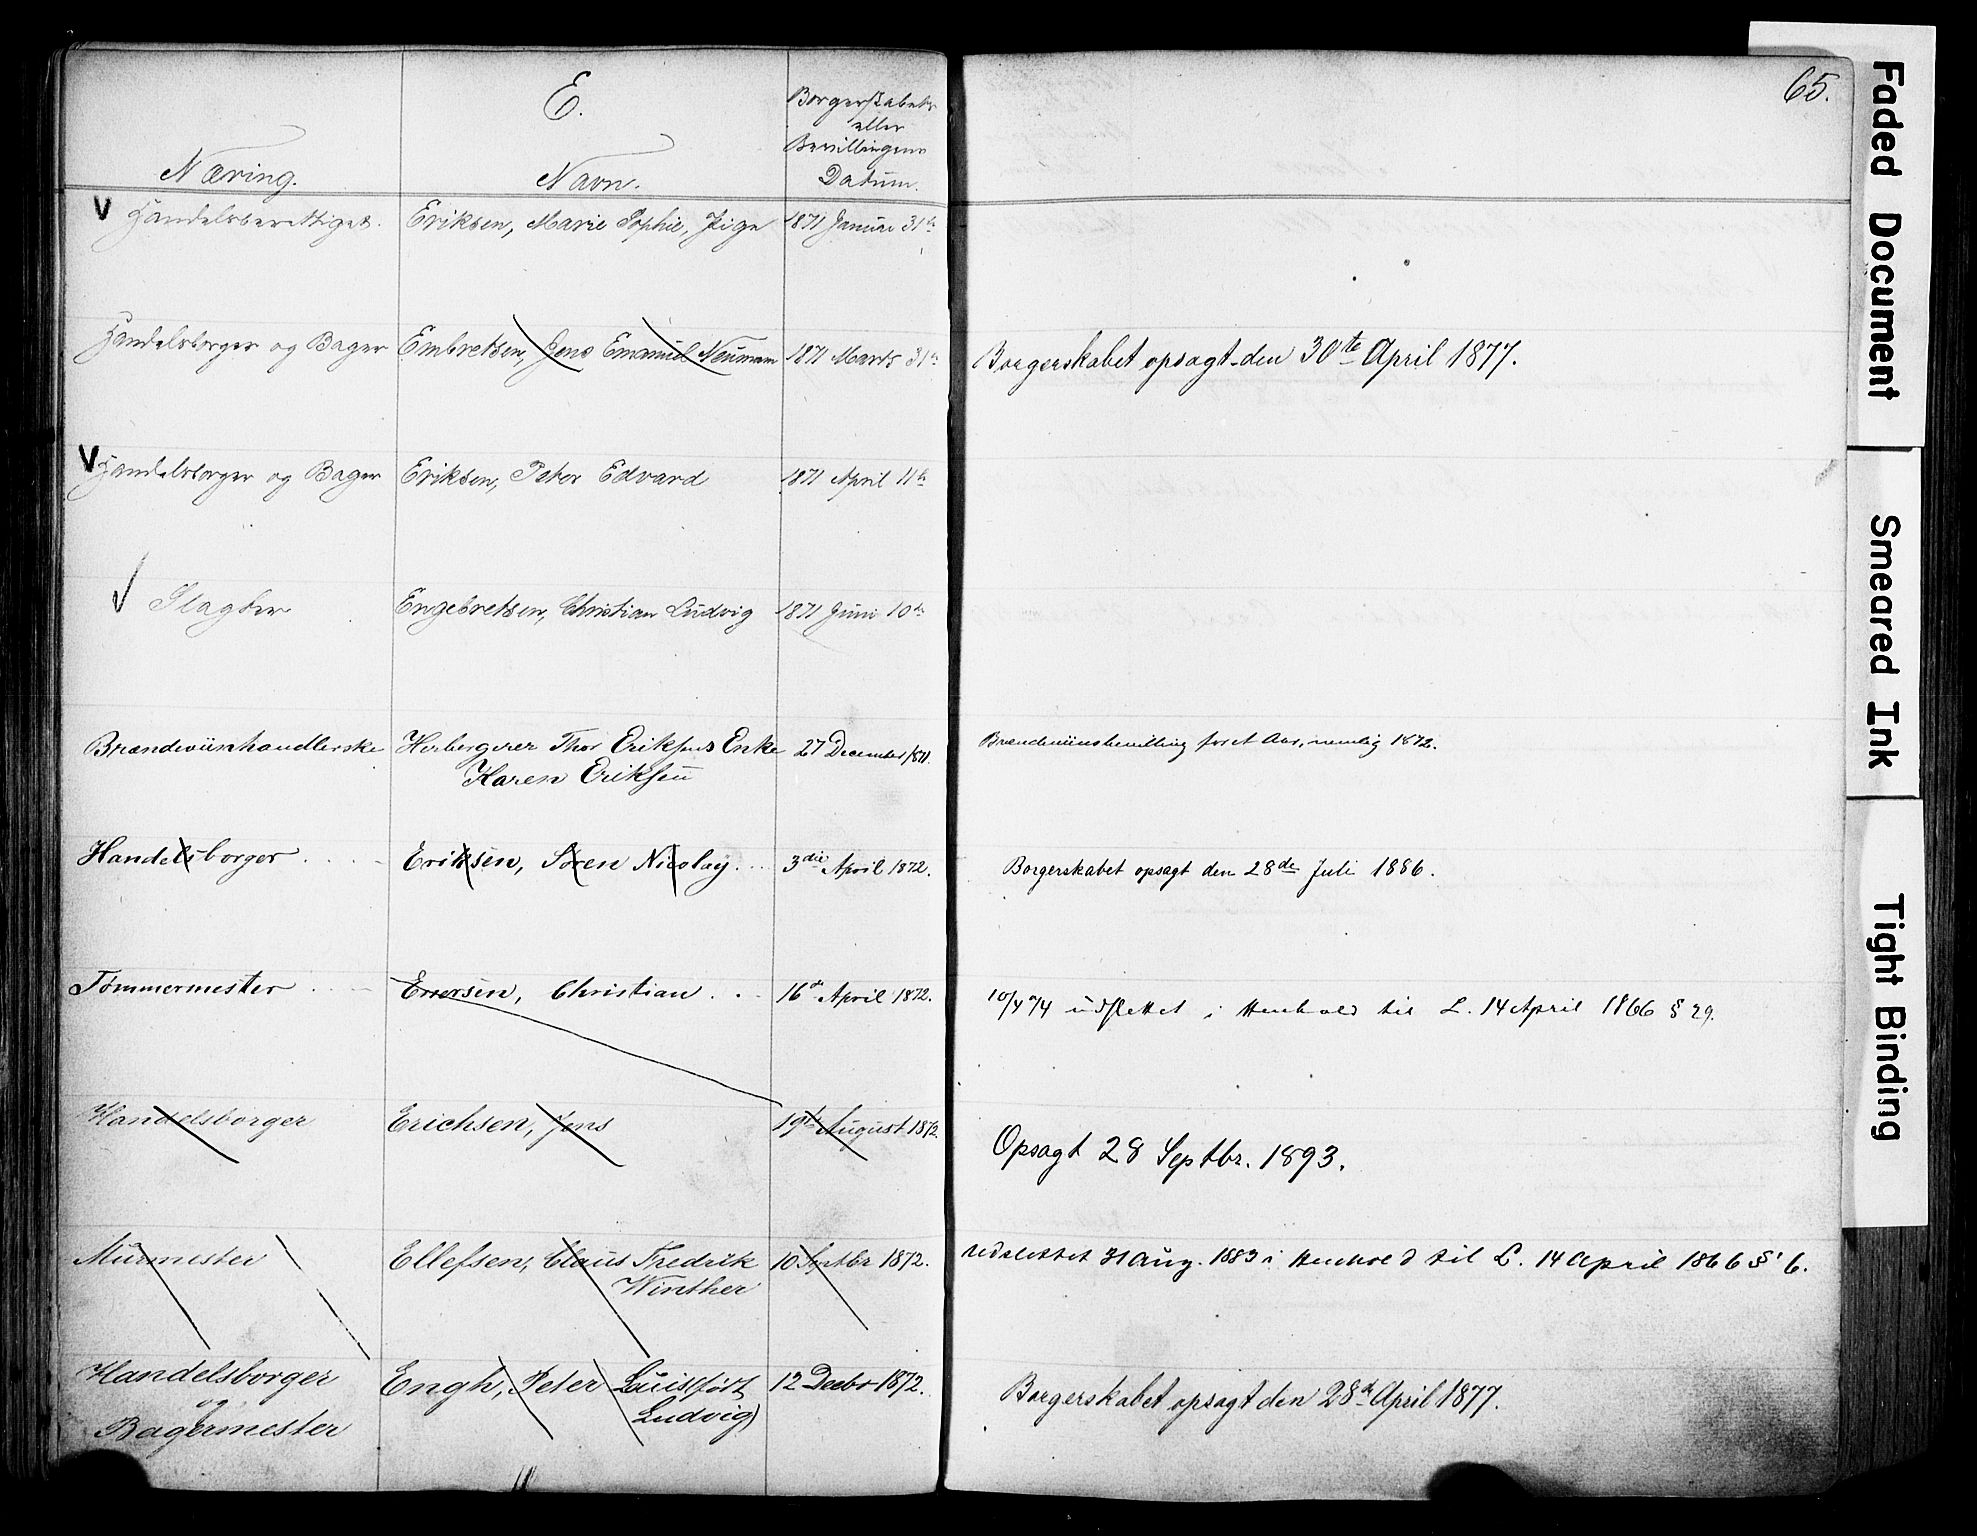 E.
65.
Næring.
Navn.
Borgerskabets
eller
Bevillingens
Datum.
V Handelsberettiget. Eriksen, Marie Sophie, Pige 1871 Januar 31te
Handelsborger og Bager Embretsen, Jens Emanuel Neumann 1871 Marts 31te Borgerskabet opsagt den 30te April 1877.
V Handelsborger og Bager Eriksen, Peter Edvard 1871 April 11te
V Slagter Engebretsen, Christian Ludvig 1871 Juni 10de
Brændeviinshandlerske Herbergerer Thor Eriksens Enke 27 December 1871. Brændeviinsbevilling for et Aar, nemlig 1872.
Karen Eriksen
Handelsborger Eriksen, Søren Nicolay. 3die April 1872. Borgerskabet opsagt den 28de Juli 1886.
Tømmermester Enersen, Christian. 16de April 1872. 10/4 74 udslettet i Henhold til L. 14 April 1866 § 29.
Handelsborger Erichsen, Jens 19de August 1872. Opsagt 28 Septbr. 1893.
Murmester Ellefsen, Claus Fredrik 10 Septbr 1872. Udslettet 31 Aug. 1883 i Henhold til L. 14 April 1866 § 6.
Winther
Handelsborger Engh, Peter Luis (født 12 Decbr 1872. Borgerskabet opsagt den 28de April 1877.
og
Ludvig)
Bagermester
Faded Document
Smeared Ink
Tight Binding